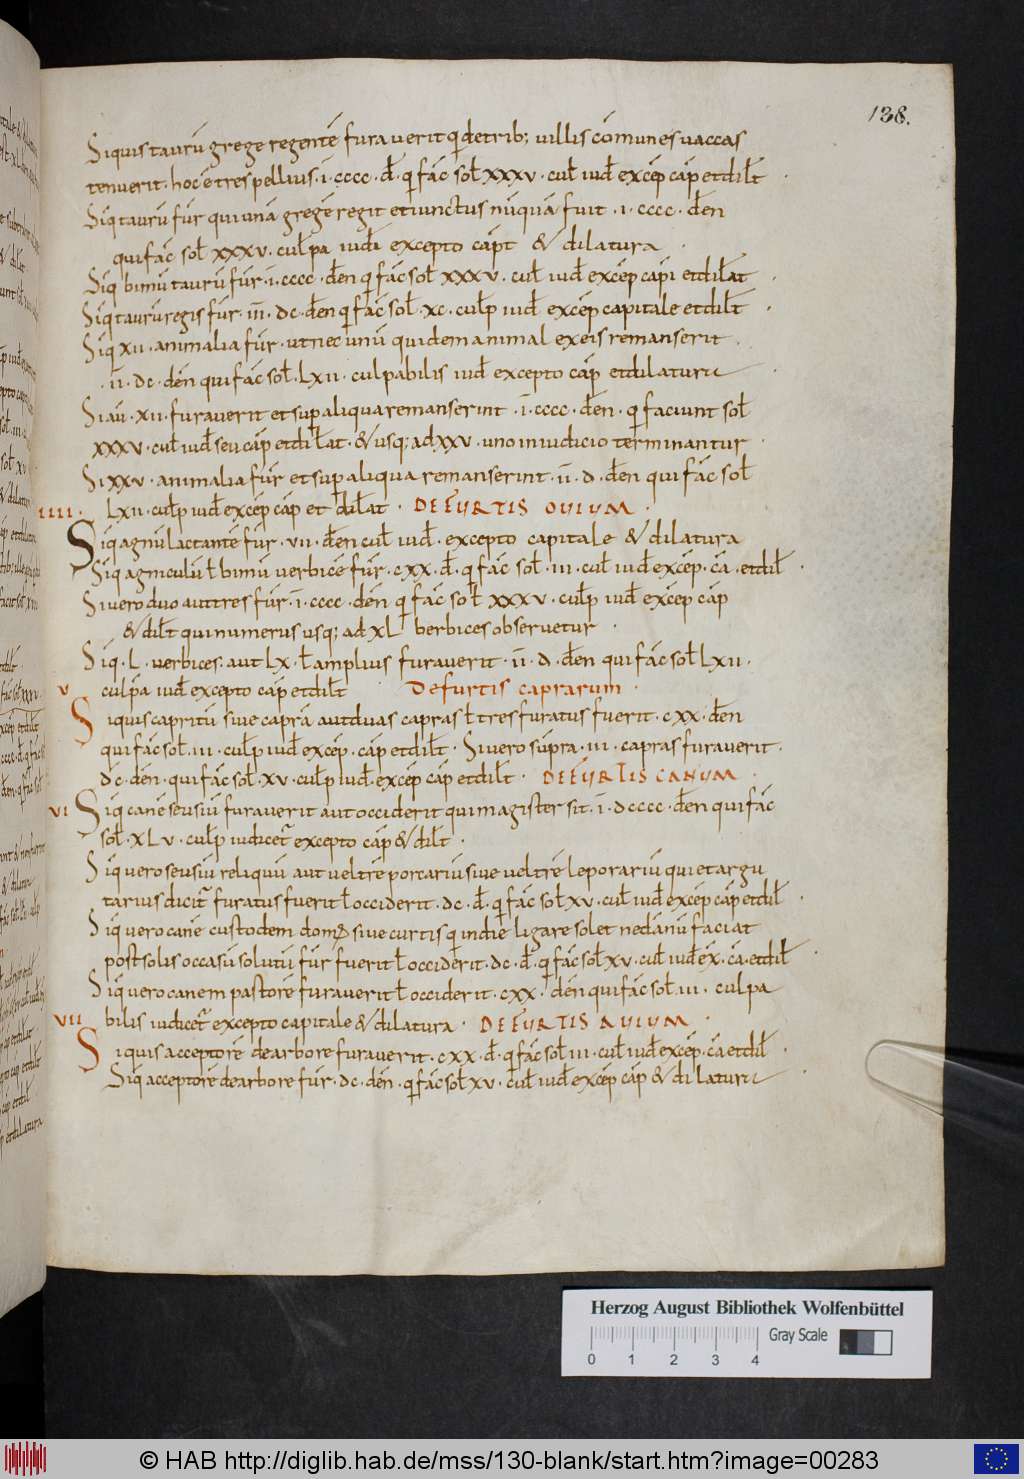 138.
Siquis taurū gregē regentē furauerit q̄ detrib; uillis cōmunes uaccas
tenuerit. hoc ē trespellius. ī. cccc. đ. q̄ fāc sol̄ xxxv. cul̄ iuđ excēp cāp et dil̄t
Siq̄ taurū fūr qui unā gregē regit et iunctus nūquā fuit. ī. cccc. dēn
qui fāc sol̄ xxxv. culpa iudi excepto cāpt & dilatura.
Siq̄ bimū taurū fūr. ī. cccc. dēn q̄ fāc sol̄ xxxv. cul̄ iuđ excēp cāpi et dil̄at
Siq̄ taurū regis fūr. īīī. dc. dēn q̄ fāc sol̄. xc. culp̄ iuđ excēp capitale et dil̄t
Siq̄ xii. animalia fūr. ut nec unū quidem animal ex eis remanserit.
. īī. dc. dēn qui fāc sol̄. Lxii. culpabilis iuđ excepto cāp et dilatura
Si aū. xii. furauerit et sup aliqua remanserint. ī. cccc. dēn. q̄ faciunt sol̄
xxxv. cul̄ iuđ seu cāp et dil̄at. & usq; ad xxv. uno in iudicio terminantur.
Si xxv. animalia fūr et sup aliqua remanserint. īī. d. dēn qui fāc sol̄
IIII. Lxii. culp̄ iuđ excēp cāp et dil̄at. DE FURTIS OUIUM.
Siq̄ agnū lactantē fūr. vii. dēn cul̄ iuđ. excepto capitale & dilatura
Siq̄ agniculū ł bimū uerbicē fūr. cxx. đ. q̄ fāc sol̄. iii. cul̄ iuđ excēp. cā. et dil̄
Si uero duo aut tres fūr. ī. cccc. dēn q̄ fāc sol̄ xxxv. culp̄ iuđ excēp cāp
& dil̄t qui numerus usq; ad xL berbices obseruetur.
Siq̄. L. uerbices. aut Lx. ł amplius furauerit. īī. d. dēn qui fāc sol̄ Lxii.
v culpa iuđ excepto cāp et dil̄t De furtis caprarum.
Siquis capritū siue caprā aut duas capras ł tres furatus fuerit. cxx. dēn
qui fāc sol̄. iii. culp̄ iuđ excēp. cāp et dil̄t. Si uero sūpra. iii. capras furauerit.
dc. dēn. qui fāc sol̄. xv. culp̄ iuđ. excēp cāp et dil̄t. DE FURTIS CANUM.
VI Siq̄ canē seusiū furauerit aut occiderit qui magister sit. ī. dcccc. dēn qui fāc
sol̄. xLv. culp̄ iudicet excepto cāp & dil̄t.
Siq̄ uero seusiū reliquū aut ueltrē porcariū siue ueltrē leporariū qui et argu
tarius dicit furatus fuerit ł occiderit. dc. đ. q̄ fāc sol̄ xv. cul̄ iuđ excēp cāp et dil̄
Siq̄ uero canē custodem dom siue curtis q̄ in die ligare solet ne dānū faciat
post solis occasū solutū fūr fuerit ł occiderit. dc. đ. q̄ fāc sol̄ xv. cul̄ iuđ ēx. cā. et dil̄
Siq̄ uero canem pastorē furauerit ł occiderit. cxx. dēn qui fāc sol̄ iii. culpa
VII bilis iudicet excepto capitale & dilatura. DE FURTIS AUIUM.
Siquis acceptorē de arbore furauerit. cxx. đ. q̄ fāc sol̄ iii. cul̄ iuđ excēp. cā et dil̄.
Siq̄ acceptorē de arbore fūr. dc. dēn. q̄ fāc sol̄ xv. cul̄ iuđ excēp cāp & dilatura
Herzog August Bibliothek Wolfenbüttel
Gray Scale
0 1 2 3 4
© HAB http://diglib.hab.de/mss/130-blank/start.htm?image=00283